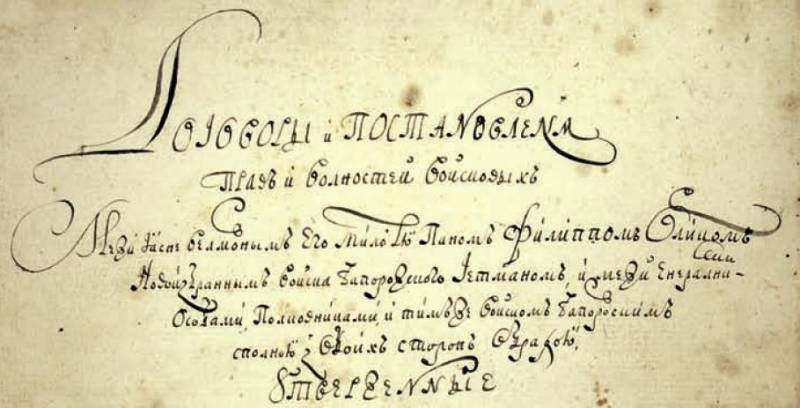 Договоры и Постановленя
Правъ и волностей войсковыхъ
Межи Ясне велможнымъ Его милостю Паномъ Филиппомъ Орликомъ
Новоизбраннымъ войска Запорожского Гетманомъ, и межи Енерални-
Особами, Полковниками, и тимъже войскомъ Запорожскимъ
сполною з обоихъ сторонъ обрадою,
Утверженные